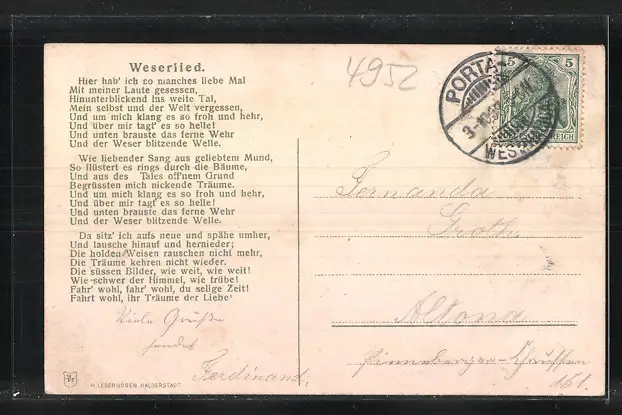 Weserlied.
Hier hab' ich so manches liebe Mal
Mit meiner Laute gesessen,
Hinunterblickend ins weite Tal,
Mein selbst und der Welt vergessen,
Und um mich klang es so froh und hehr,
Und über mir tagt' es so helle!
Und unten brauste das ferne Wehr
Und der Weser blitzende Welle.
Wie liebender Sang aus geliebtem Mund,
So flüstert es rings durch die Bäume,
Und aus des Tales off'nem Grund
Begrüssten mich nickende Träume.
Und um mich klang es so froh und hehr,
Und über mir tagt' es so helle!
Und unten brauste das ferne Wehr
Und der Weser blitzende Welle.
Da sitz' ich aufs neue und spähe umher,
Und lausche hinauf und hernieder;
Die holden Weisen rauschen nicht mehr,
Die Träume kehren nicht wieder.
Die süssen Bilder, wie weit, wie weit!
Wie schwer der Himmel, wie trübe!
Fahr' wohl, fahr' wohl, du selige Zeit!
Fahrt wohl, ihr Träume der Liebe!
Viele Grüße
sendet
Ferdinand.
H. LEDERBOGEN, HALBERSTADT
4952
PORTA
5 5
REICH
Fernanda
Groth
Altona
Pinneberger-Chaussee
161.